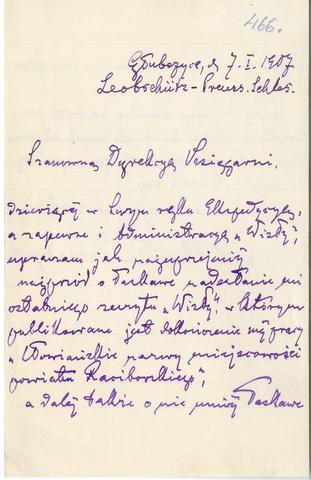 466.
Głubczyce, d. 7. I. 1907
Leobschütz – Preuss. Schles.
Szanowną Dyrekcyę Księgarni,
dzierżącej w swym ręku Ekspedycyę,
a zapewne i Administracyę „Wisły”,
upraszam jak najuprzejmiej
najprzód o łaskawe nadesłanie mi
ostatniego zeszytu „Wisły”, w którym
publikowane jest dokończenie mej pracy
„Słowiańskie nazwy miejscowości
powiatu Raciborskiego”,
a dalej także o nie mniej łaskawe